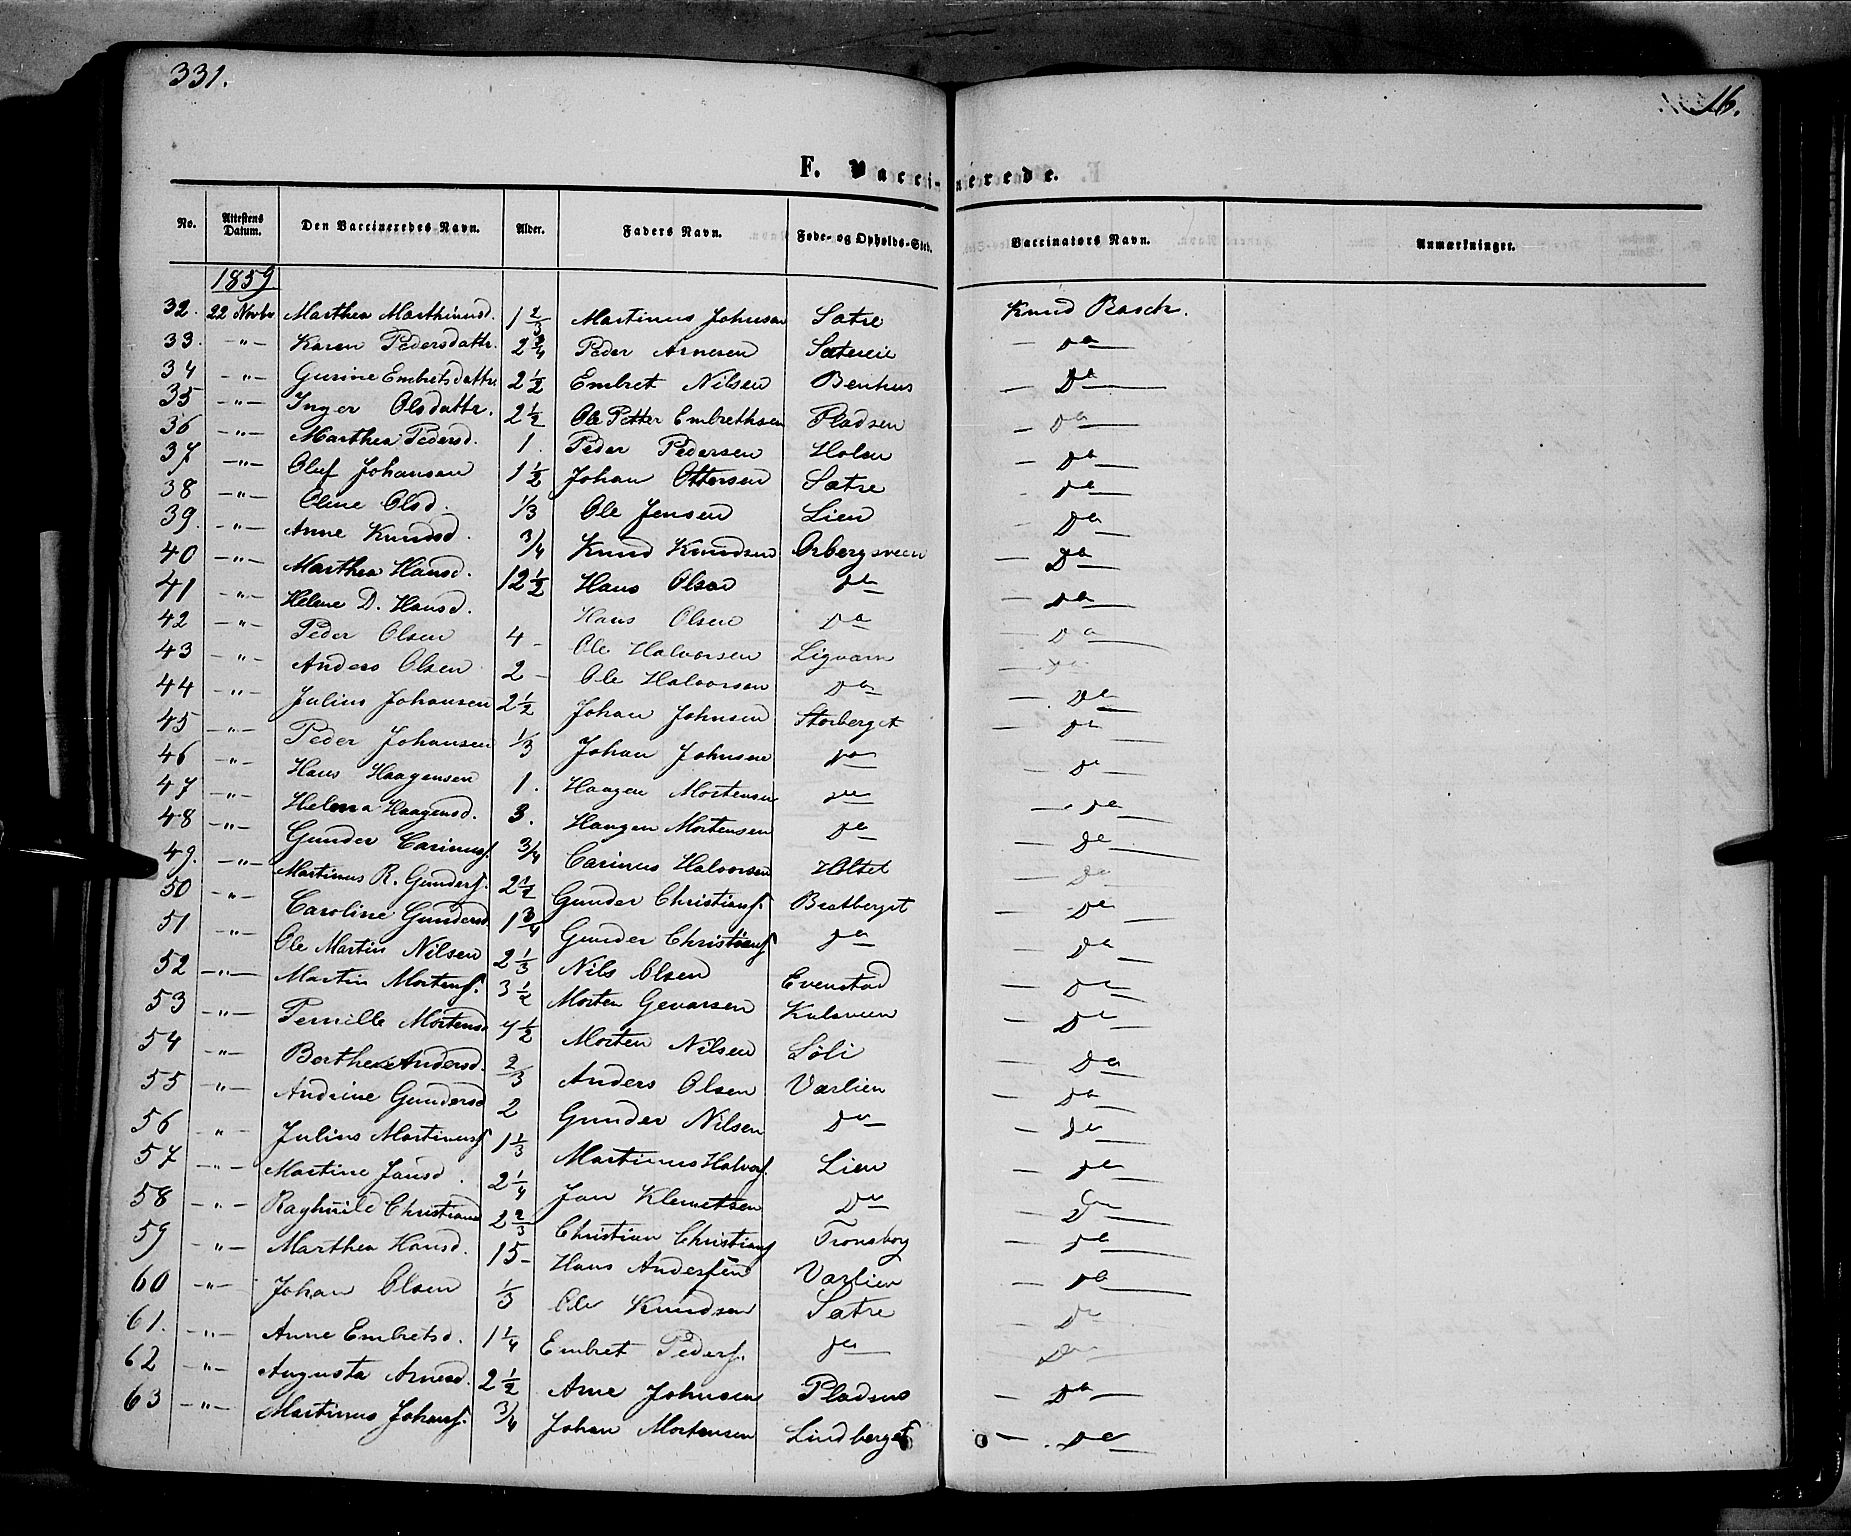 331.
16.
F. Vaccinerede.
No. Attestens Datum. Den Vaccineredes Navn. Alder. Faders Navn. Føde- og Opholds-Sted. Vaccinators Navn. Anmærkninger.
1859
32. 22 Novbr Marthea Marthinusd. 1 2/3 Martinus Johnsen Sætre Knud Rasch.
33. -"- Karen Pedersdattr. 2 3/4 Peder Arnesen Sætereie Do
34 -"- Gurine Embretsdattr 2 1/2 Embret Nilsen Benhus Do
35 -"- Inger Olsdattr. 2 1/2 Ole Petter Embrethsen Pladsen Do
36 -"- Marthea Pedersd. 1. Peder Pedersen Holen Do
37 -"- Oluf Johansen 1 1/2 Johan Ottersen Sætre Do
38 -"- Oline Olsd. 1/3 Ole Jensen Lien Do
39. -"- Anne Knudsd. 3/4 Knud Knudsen Orbergsveen Do
40 -"- Marthea Hansd. 12 1/2 Hans Olsen do Do
41 -"- Helene D. Hansd. Hans Olsen Do Do
42 -"- Peder Olsen 4 - Ole Halvorsen Ligvarn Do
43 -"- Anders Olsen 2 - Ole Halvorsen Do Do
44 -"- Julius Johansen 2 1/2 Johan Johnsen Storberget Do
45 -"- Peder Johansen 1/3 Johan Johnsen do Do
46 -"- Hans Haagensen 1. Haagen Mortensen do Do
47 -"- Helena Haagensd. 3. Haagen Mortensen do Do
48 -"- Gunder Carinusf. 3/4 Carinus Halvorsen Holtet Do
49. -"- Martinus R. Gunderf. 2 1/2 Gunder Christianf. Bratberget Do
50 -"- Caroline Gundersd 1 3/4 Gunder Christianf do Do
51 -"- Ole Martin Nilsen 2 1/3 Nils Olsen Evenstad Do
52 -"- Martin Mortensf. 3 1/2 Morten Gevarsen Kulsveen Do
53 -"- Pernille Mortensd 7 1/2 Morten Nilsen Søli Do
54 -"- Berthea Andersd. 2/3 Anders Olsen Værlien Do
55 -"- Andrine Gundersd 2 Gunder Nilsen Do Do
56 " Julius Martinusf 1 1/3 Martinus Halvorf. Lien do
57 -"- Martine Jansd. 2 1/4 Jan Klemetsen Do do
58 -"- Raghnild Christiansd 2 2/3 Christian Christianf Tronsborg Do
59 -"- Marthea Hansd. 15 - Hans Andersen Værlien do
60 -"- Johan Olsen 1/3 Ole Knudsen Sætre Do
61. -"- Anne Embretsd. 1 1/4 Embret Pederf. do Do
62 -"- Augusta Arnesd. 2 1/2 Arne Johnsen Pladsens Do
63 -"- Martinus Johansf. 3/4 Johan Mortensen Lindberget Do